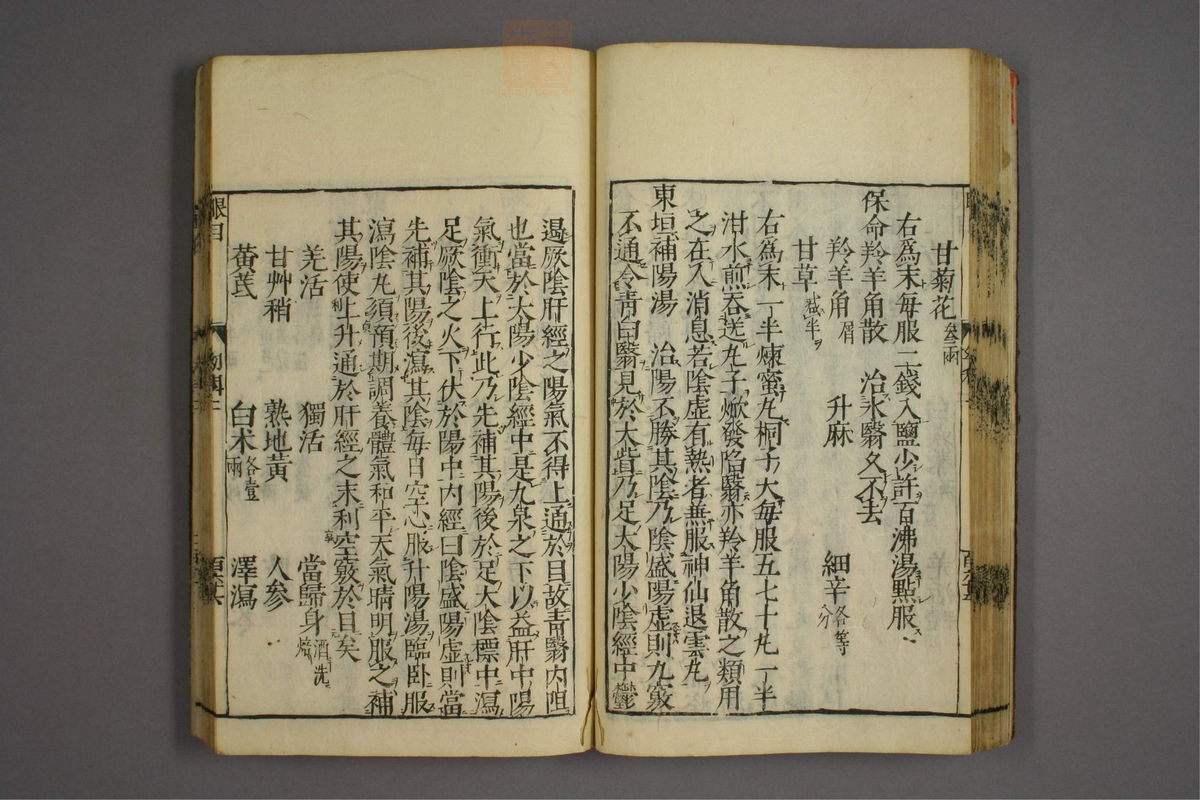 甘菊花 叁兩
右爲末每服二錢入鹽少許百沸湯點服
保命羚羊角散 治氷翳久不去
羚羊角 屑 升麻 細辛 各等分
甘草 減半
右爲末一半煉蜜丸桐子大每服五七十丸一半
泔水煎吞送丸子焮發陷翳亦羚羊角散之類用
之在人消息若陰虛有熱者無服神仙退雲丸
東垣補陽湯 治陽不勝其陰乃陰盛陽虛則九竅
不通令青白翳見於大眥乃足太陽少陰經中鬱
遏厥陰肝經之陽氣不得上通於目故青翳内阻
也當於太陽少陰經中是九泉之下以益肝中陽
氣衝天上行此乃先補其陽後於足太陰標中瀉
足厥陰之火下伏於陽中内經曰陰盛陽虛則當
先補其陽後瀉其陰每日空心服升陽湯臨卧服
瀉陰丸須預期調養體氣和平天氣晴明服之補
其陽使上升通於肝經之末利空竅於目矣
羌活 獨活 當歸身 酒洗焙
甘艸稍 熟地黃 人參
黃茋 白朮 各壹兩 澤瀉
眼目